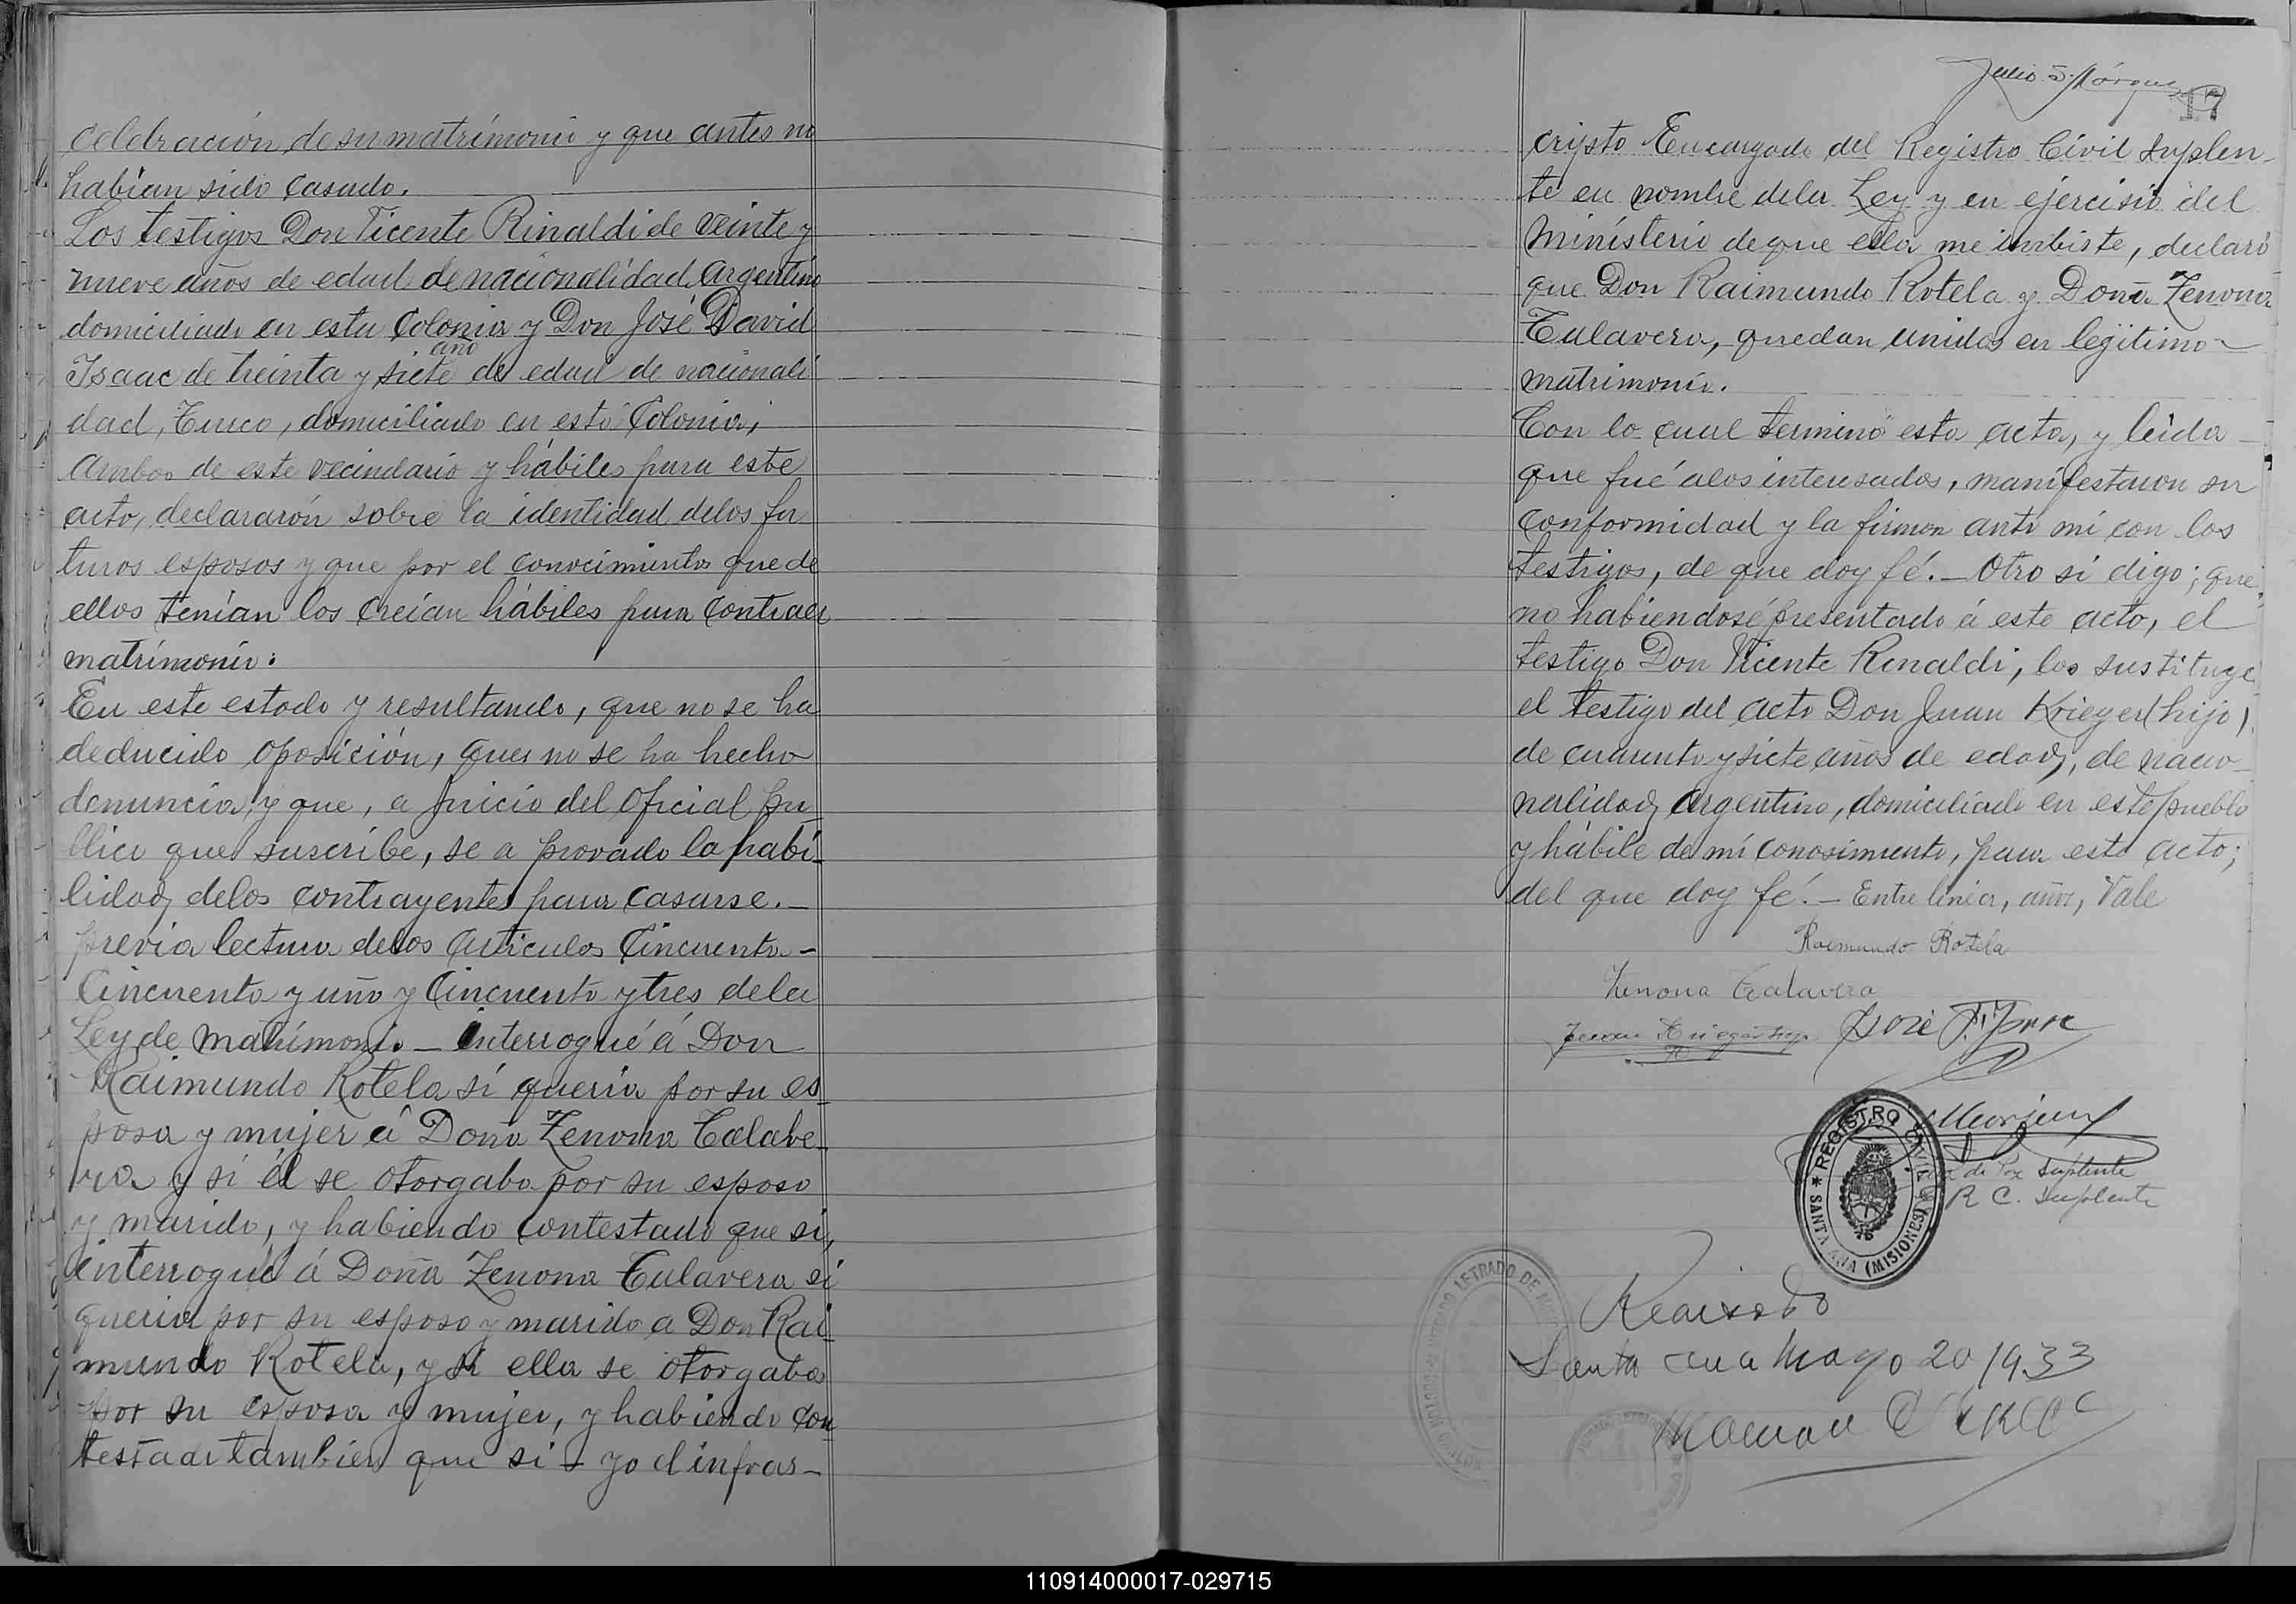 celebración de su matrímonio y que antes no
habían sido casado.
Los testigos Don Vicente Rinaldi de veinte y
nueve años de edad de nacionalidad Argentino
domiciliado en esta Colonia y Don José David
año
Isaac de treinta y siete de edad de nacionali
dad, Turco, domiciliado en esta Colonia,
Ambos de este vecindario y hábiles para este
acto, declararón sobre la identidad delos fu
turos esposos y que por el conocimiento que de
ellos tenían los creían hábiles para contraer
matrímonio:
En este estado y resultando, que no se ha
deducido oposición, que no se ha hecho
denuncia, y que, a juicio del Oficial pu_
blico que suscribe, se a provado la habi_
lidad delos contrayentes para casarse._
previa lectura delos Articulos Cincuenta-
Cincuenta y uno y Cincuenta y tres dela
Ley de Matrímonio_ interrogué á Don
Raimundo Rotela sí quería por su es_
posa y mujer á Doña Zenona Talave_
ra y sí él se otorgaba por su esposo
y marido, y habiendo contestado que sí,
interrogué á Doña Zenona Talavera si
quería por su esposo y marido a Don Rai_
mundo Rotela, y si ella se otorgaba
por su esposa y mujer, y habiendo con
testado tambien que si - yo el infras-
Julio S. Márquez
17
cripto Encargado del Registro Cívil Suplen-
te en nombre dela Ley y en ejercisio del
Ministerio de que ella me imbiste, declaro
que Don Raimundo Rotela y Doña Zenona
Talavera, quedan unidos en legítimo
matrimonio.
Con lo cual terminó esta acta, y leida
que fué alos interesados, manífestaron su
conformidad y la firman ante mí con los
testigos, de que doy fé._ Otro sí digo; que
no habiendosé presentado á este acto, el
testigo Don Vicente Renaldi, los sustituye
el testigo del acto Don Juan Krieger (hijo)
de cuarenta y siete años de edad, de nacio-
nalidad Argentino, domiciliado en este pueblo
y hábile de mí conosimiento, para este acto;
del que doy fé._ Entre linea, año, Vale
Raimundo Rotela
Zenona Talavera
Juan Krieger hijo José
de Paz Suplente
R C. Suplente
REGISTRO CIVIL
* SANTA ANA (MISIONES)
LETRADO DE
Revisado
Santa Ana Mayo 20 1933
110914000017-029715